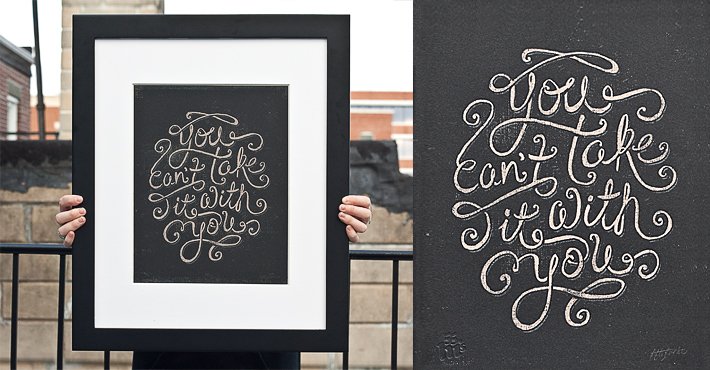 you
can't take
it with
you
you
can't take
it with
you